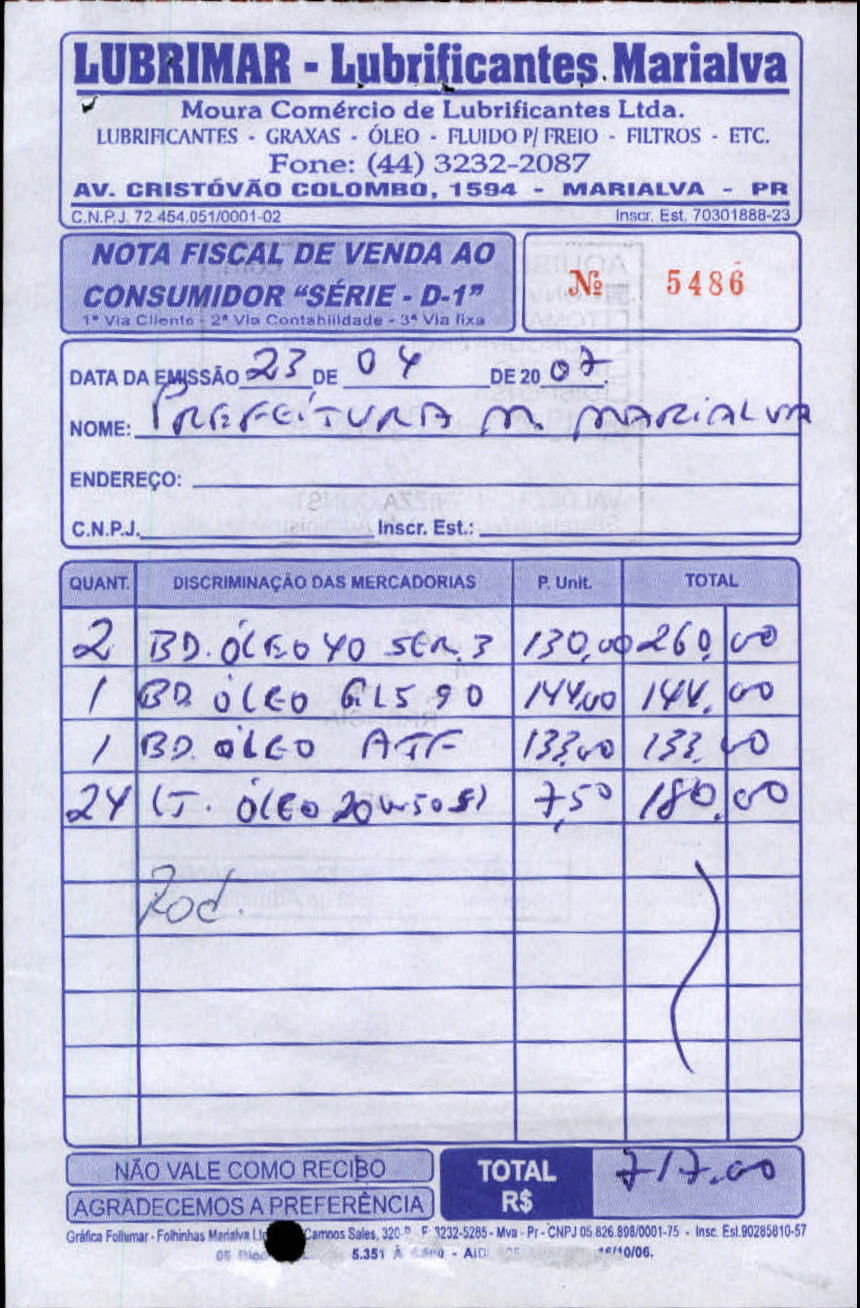 LUBRIMAR - Lubrificantes Marialva
Moura Comércio de Lubrificantes Ltda.
LUBRIFICANTES - GRAXAS - ÓLEO - FLUIDO P/ FREIO - FILTROS - ETC.
Fone: (44) 3232-2087
AV. CRISTÓVÃO COLOMBO, 1594 - MARIALVA - PR
C.N.P.J. 72.454.051/0001-02 Inscr. Est. 70301888-23
NOTA FISCAL DE VENDA AO
CONSUMIDOR "SÉRIE - D-1"
1ª Via Cliente - 2ª Via Contabilidade - 3ª Via fixa
Nº 5486
DATA DA EMISSÃO 23 DE 04 DE 20 07.
NOME: PREFEITURA M. MARIALVA
ENDEREÇO:
C.N.P.J. Inscr. Est.:
QUANT. DISCRIMINAÇÃO DAS MERCADORIAS P. Unit. TOTAL
2 BD. ÓLEO 40 SER. 3 130,00 260,00
1 BD. ÓLEO GL5 90 144,00 144,00
1 BD. ÓLEO ATF 133,00 133,00
24 LT. ÓLEO 20W50 7,50 180,00
Rod.
NÃO VALE COMO RECIBO
AGRADECEMOS A PREFERÊNCIA
TOTAL
R$ 717,00
Gráfica Folhimar - Folhinhas Marialva Campos Sales, 320 F. 3232-5285 - Mva - Pr - CNPJ 05.826.898/0001-75 - Insc. Est. 90285810-57
05 5.351 À 16/10/06.